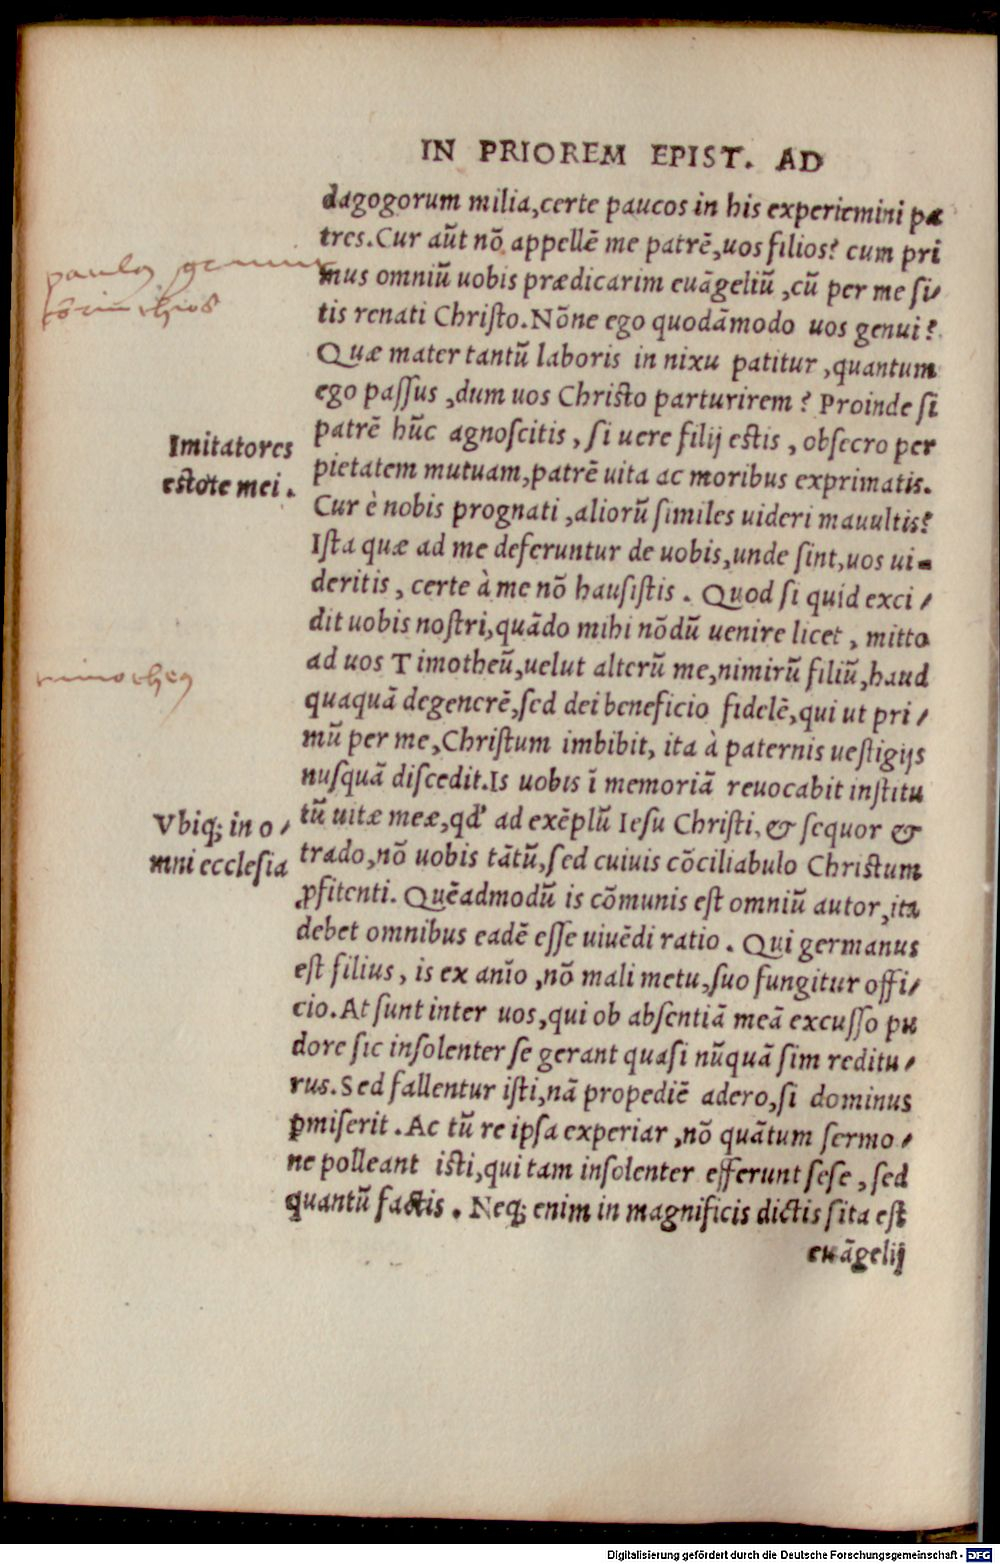 IN PRIOREM EPIST. AD
dagogorum milia,certe paucos in his experiemini pa
tres.Cur aūt nō appellē me patrē,uos filios? cum pri
paulꝰ genuit
mus omniū uobis prædicarim euāgeliū ,cū per me ſi⸗
corinthios
tis renati Chriſto.Nōne ego quodāmodo uos genui?
Quæ mater tantū laboris in nixu patitur ,quantum
ego paſſus ,dum uos Chriſto parturirem ? Proinde ſi
Imitatores
patrē hūc agnoſcitis , ſi uere filij eſtis , obſecro per
eſtote mei .
pietatem mutuam,patrē uita ac moribus exprimatis.
Cur è nobis prognati ,aliorū ſimiles uideri mauultis?
Iſta quæ ad me deferuntur de uobis,unde ſint,uos ui-
deritis , certe à me nō hauſiſtis . Quod ſi quid exci⸗
dit uobis noſtri,quādo mihi nōdū uenire licet , mitto
timotheꝰ
ad uos Timotheū,uelut alterū me,nimirū filiū,haud
quaquā degenerē,ſed dei beneficio fidelē,qui ut pri⸗
mū per me,Chriſtum imbibit, ita à paternis ueſtigijs
nuſquā diſcedit.Is uobis ī memoriā reuocabit inſtitu
Vbiq; in o⸗
tū uitæ meæ,qđ ad exēplū Ieſu Chriſti, & ſequor &
mni eccleſia
trado,nō uobis tātū,ſed cuiuis cōciliabulo Chriſtum
ꝓfitenti. Quēadmodū is cōmunis eſt omniū autor,ita
debet omnibus eadē eſſe uiuēdi ratio . Qui germanus
eſt filius , is ex anīo ,nō mali metu,ſuo fungitur offi⸗
cio.At ſunt inter uos,qui ob abſentiā meā excuſſo pu
dore ſic inſolenter ſe gerant quaſi nūquā ſim reditu⸗
rus.Sed fallentur iſti,nā propediē adero,ſi dominus
ꝑmiſerit .Ac tū re ipſa experiar ,nō quātum ſermo⸗
ne polleant iſti,qui tam inſolenter efferunt ſeſe , ſed
quantū factis . Neq; enim in magnificis dictis ſita eſt
euāgelij
Digitalisierung gefördert durch die Deutsche Forschungsgemeinschaft - DFG